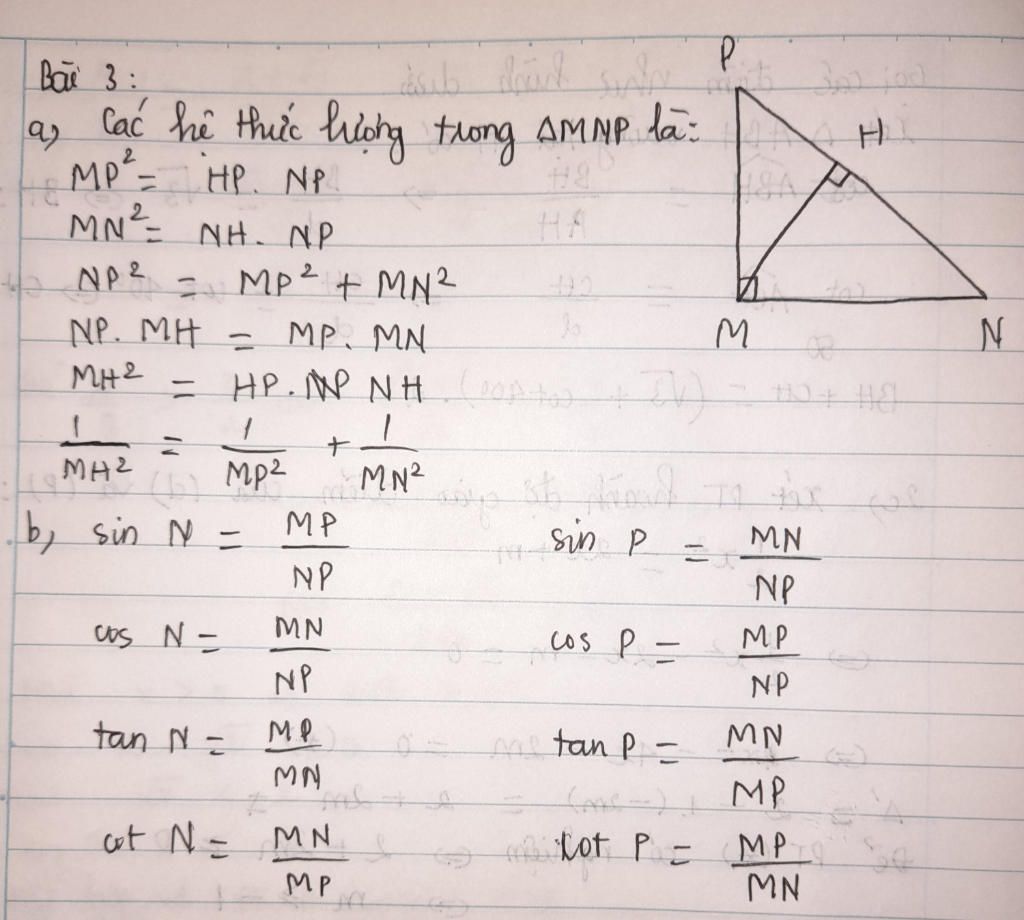 Bài 3:
a, Các hệ thức lượng trong ΔMNP là:
MP² = HP. NP
MN² = NH. NP
NP² = MP² + MN²
NP. MH = MP. MN
MH² = HP. NH
1/MH² = 1/MP² + 1/MN²
P
H
M
N
b, sin N = MP/NP sin P = MN/NP
cos N = MN/NP cos P = MP/NP
tan N = MP/MN tan P = MN/MP
cot N = MN/MP cot P = MP/MN